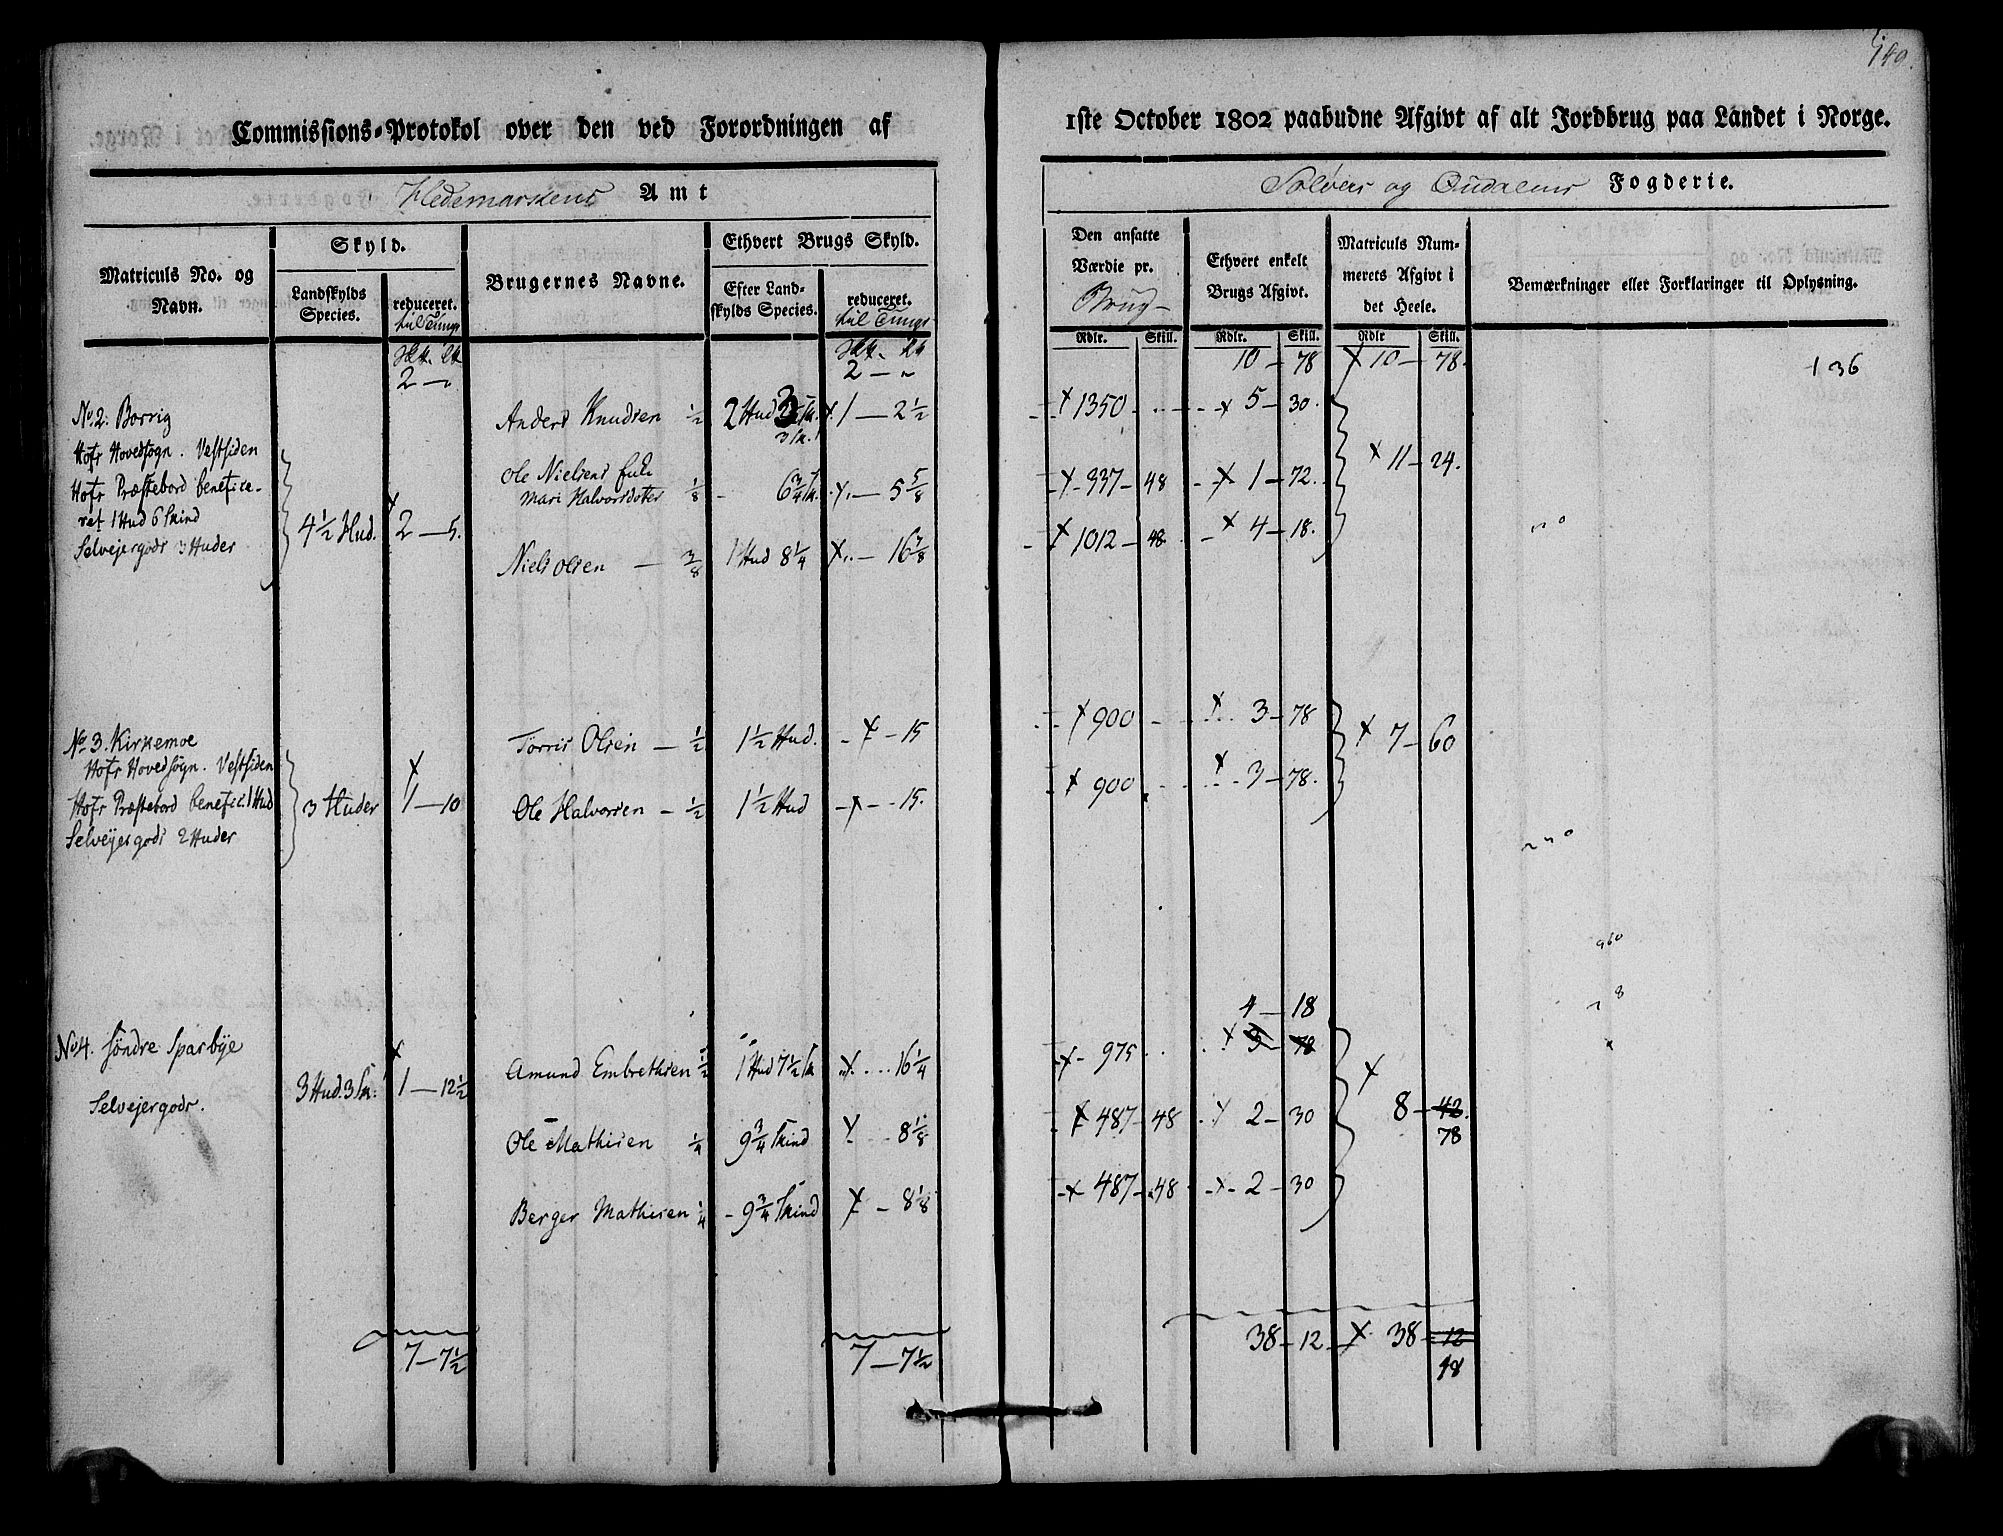 140.
Commissions-Protokol over den ved Forordningen af 1ste October 1802 paabudne Afgivt af alt Jordbrug paa Landet i Norge.
Hedemarkens Amt
Soløers og Oudalens Fogderie.
Matriculs No. og Navn.
Skyld.
Landskylds Species.
reduceret. til Tunge
Brugernes Navne.
Ethvert Brugs Skyld.
Efter Landskylds Species.
reduceret. til Tunge
Den ansatte Værdie pr. Brug
Ethvert enkelt Brugs Afgivt.
Matriculs Nummerets Afgivt i det Heele.
Bemærkninger eller Forklaringer til Oplysning.
Rdlr. Skill. Rdlr. Skill. Rdlr Skill.
2 — 2 — 10 — 78 x 10 — 78. 136
No. 2. Borrig
Hofs Hovedsogn. Vestsiden
Hofs Præstebord benefice-
ret 1 Hud 6 Skind
Selvejergods 3 Huder
4 1/2 Hud. 2 — 5.
Anders Knudsen 1/2 2 Hud 3 x 1 — 2 1/2 x 1350 x 5 — 30.
x 11 — 24.
Ole Nielsens
Mari Halvorsdotter 1/8 6 3/4 5 5/8 x 337 — 48 x 1 — 72.
Niels Olsen — 3/8 1 Hud 8 1/4 x — 16 7/8 x 1012 — 48 x 4 — 18.
No. 3. Kirkemoe
Hofs Hovedsogn. Vestsiden
Hofs Præstebord benefic. 1 Hud
Selvejergods 2 Huder
3 Huder x 1 — 10
Torris Olsen — 1/2 1 1/2 Hud. x — 15 x 900 x 3 — 78
x 7 — 60
Ole Halvorsen — 1/2 1 1/2 Hud x — 15. x 900 x 3 — 78.
960
4 — 18
No 4. Søndre Sparbye
Selvejergods.
3 Hud. 3 Sk. x 1 — 12 1/2
Amund Embrethsen 1/2 1 Hud 7 1/2 Sk x 16 1/4 x 975 x 3 — 78
x 8 — 42.
78
Ole Mathisen 1/4 9 3/4 Skind x 8 1/8 x 487 — 48 x 2 — 30
Berger Mathisen 1/4 9 3/4 Skind x — 8 1/8 x 487 — 48 x 2 — 30
7 — 7 1/2 7 — 7 1/2 38 — 12 x 38 — 12
18